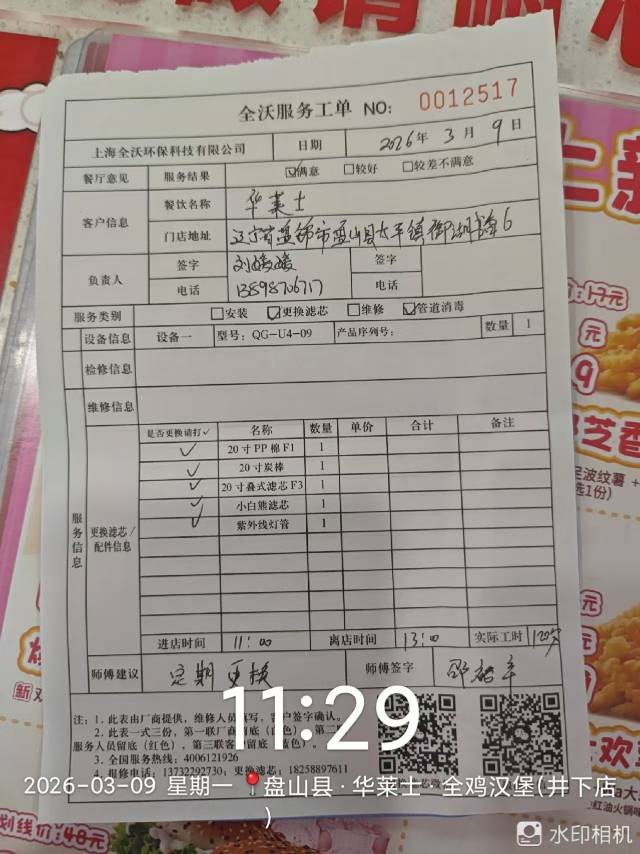 全沃服务工单 NO: 0012517
上海全沃环保科技有限公司 日期 2026年 3月 9日
餐厅意见 服务结果 ☑满意 □较好 □较差不满意
客户信息 餐饮名称 华莱士
门店地址 辽宁省盘锦市盘山县太平镇御湖
负责人 签字 刘媛媛 签字
电话 13898706717 电话
服务类别 □安装 ☑更换滤芯 □维修 ☑管道消毒
设备信息 设备一 型号: QG-U4-09 产品序列号: 数量 1
检修信息
维修信息
服务信息
更换滤芯/配件信息
是否更换请打✓ 名称 数量 单价 合计 备注
✓ 20寸PP棉F1 1
✓ 20寸炭棒 1
✓ 20寸叠式滤芯F3 1
✓ 小白熊滤芯 1
✓ 紫外线灯管 1
进店时间 11:00 离店时间 13:00 实际工时
师傅建议 定期更换 师傅签字
注: 1. 此表由厂商提供, 维修人员填写, 客户签字确认。
2. 此表一式三份, 第一联厂商留底(白色), 第二
服务人员留底(红色), 第三联客户留底(蓝色)。
3. 全国服务热线: 4006121926
4. 报修电话: 13732292730; 更换滤芯: 18258897611
11:29
2026-03-09 星期一 盘山县·华莱士·全鸡汉堡(井下店
)
水印相机
划线价:48元